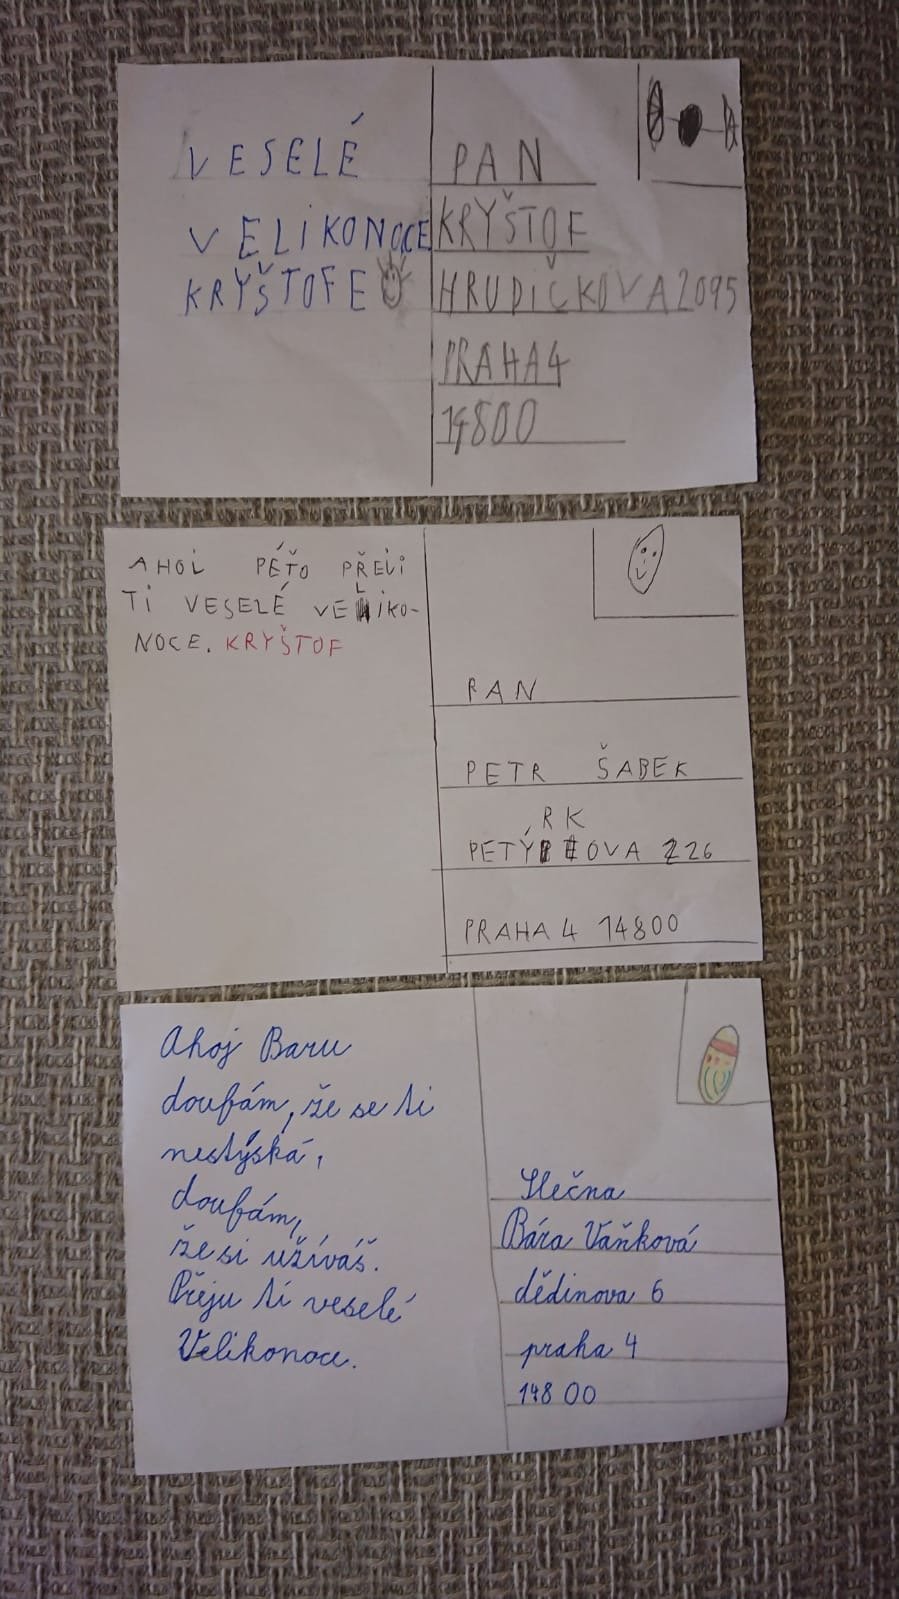 VESELÉ
VELIKONOCE
KRYŠTOFE
PAN
KRYŠTOF
HRUDIČKOVA 2095
PRAHA 4
14800
AHOI PÉŤO PŘEII
TI VESELÉ VELIKO-
NOCE. KRYŠTOF
PAN
PETR ŠABEK
PETÝRKOVA 226
PRAHA 4 14800
Ahoj Baru
doufám, že se ti
nestýská,
doufám,
že si užíváš.
Přeju ti veselé
Velikonoce.
Slečna
Bára Vaňková
dědinova 6
praha 4
148 00